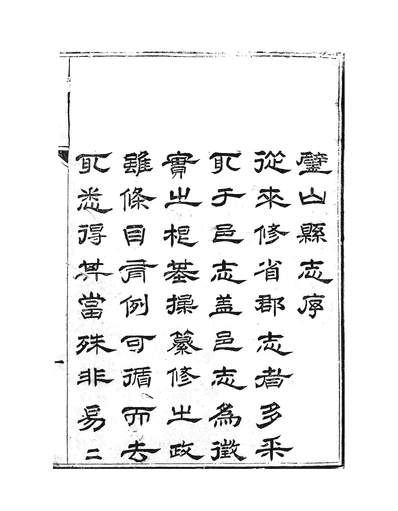 璧山縣志序
從來修省郡志者多采
取于邑志盖邑志為徵
實之根基操纂修之政
雖條目有例可循而去
取悉得其當殊非易二
一